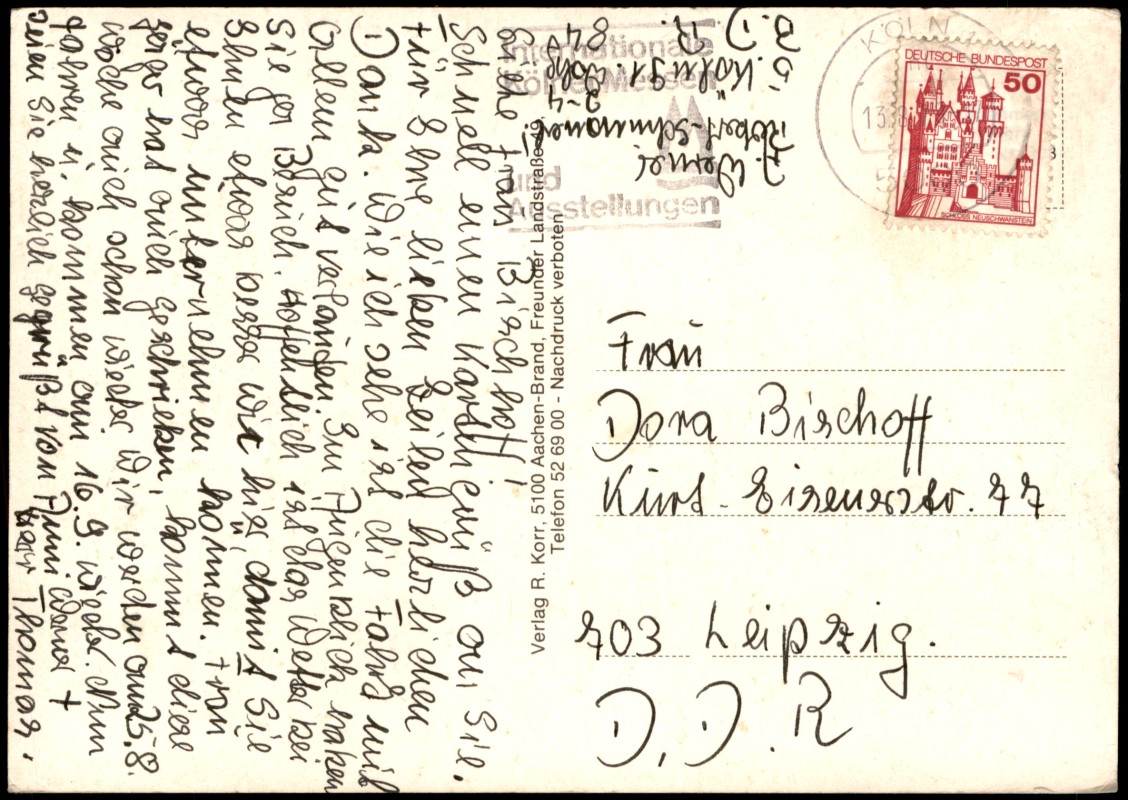 Liebe Frau Bischoff!
Schnell einen Kartengruß an Sie.
Für Ihre lieben Zeilen herzlichen
Dank. Wie ich sehe ist die Fahrt mit
Allem gut verlaufen. Im Augenblick haben
Sie ja Besuch. Hoffentlich ist das Wetter bei
Ihnen etwas besser wie hier, damit Sie
etwas unternehmen können. Frau
hat auch geschrieben, kommt diese
Woche auch schon wieder. Wir werden am 25.8.
fahren u. kommen am 16.9. wieder. Nun
seien Sie herzlich gegrüßt von
Thomas.
A. Werner
Robert-Schumannstr.
5 Köln 91
B.D.R.
Internationale
Kölner Messen
und
Ausstellungen
Verlag R. Korr, 5100 Aachen-Brand, Freunder Landstraße 49
Telefon 52 69 00 - Nachdruck verboten
KÖLN
DEUTSCHE BUNDESPOST
50
SCHLOSS NEUSCHWANSTEIN
Frau
Dora Bischoff
Kurt-Eisnerstr. 77
703 Leipzig.
D.D.R